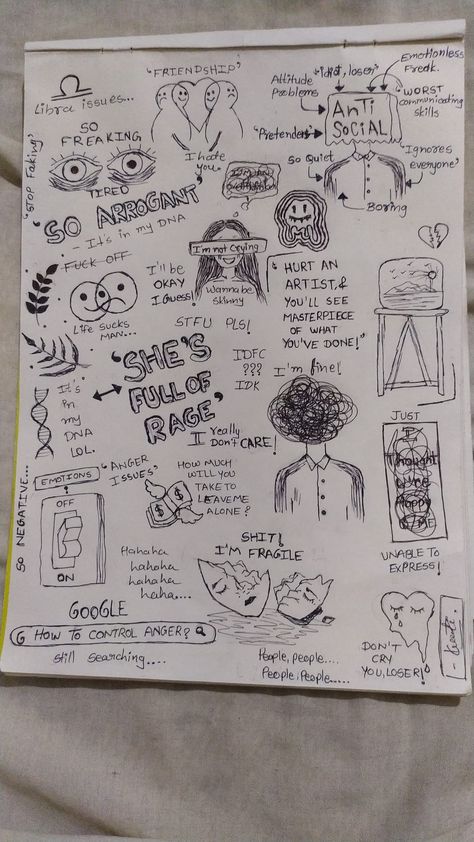 Libra issues...
'FRIENDSHIP'
Attitude
Problems
"idiot, loser"
Emotionless
Freak.
"WORST
communicating
skills
ANTi
SOCIAL
'Pretender'
"Ignores
everyone'
So Quiet
Boring
'STOP Faking'
SO
FREAKING
TIRED
I hate
you
'SO ARROGANT
- It's in my DNA
FUCK OFF
I'm not Crying
Wannabe
skinny
I'll be
OKAY
I Guess!
"HURT AN
ARTIST, &
YOU'LL SEE
MASTERPIECE
OF WHAT
YOU'VE DONE!"
Life sucks
MAN...
STFU PLS!
'SHE'S
FULL OF
RAGE'
IDFC
???
IDK
I'm fine!
It's
in
my
DNA
LOL.
I really
Don't CARE!
JUST
I
Thought
UNABLE TO
EXPRESS!
SO NEGATIVE...
EMOTIONS
OFF
ON
"ANGER
ISSUES"
HOW MUCH
WILL YOU
TAKE TO
LEAVE ME
ALONE?
$
$
Hahaha
hahaha
hahaha
haha....
SHIT!
I'M FRAGILE
GOOGLE
G HOW TO CONTROL ANGER?
still searching....
People, people....
People, People.....
DON'T
CRY
YOU, LOSER!